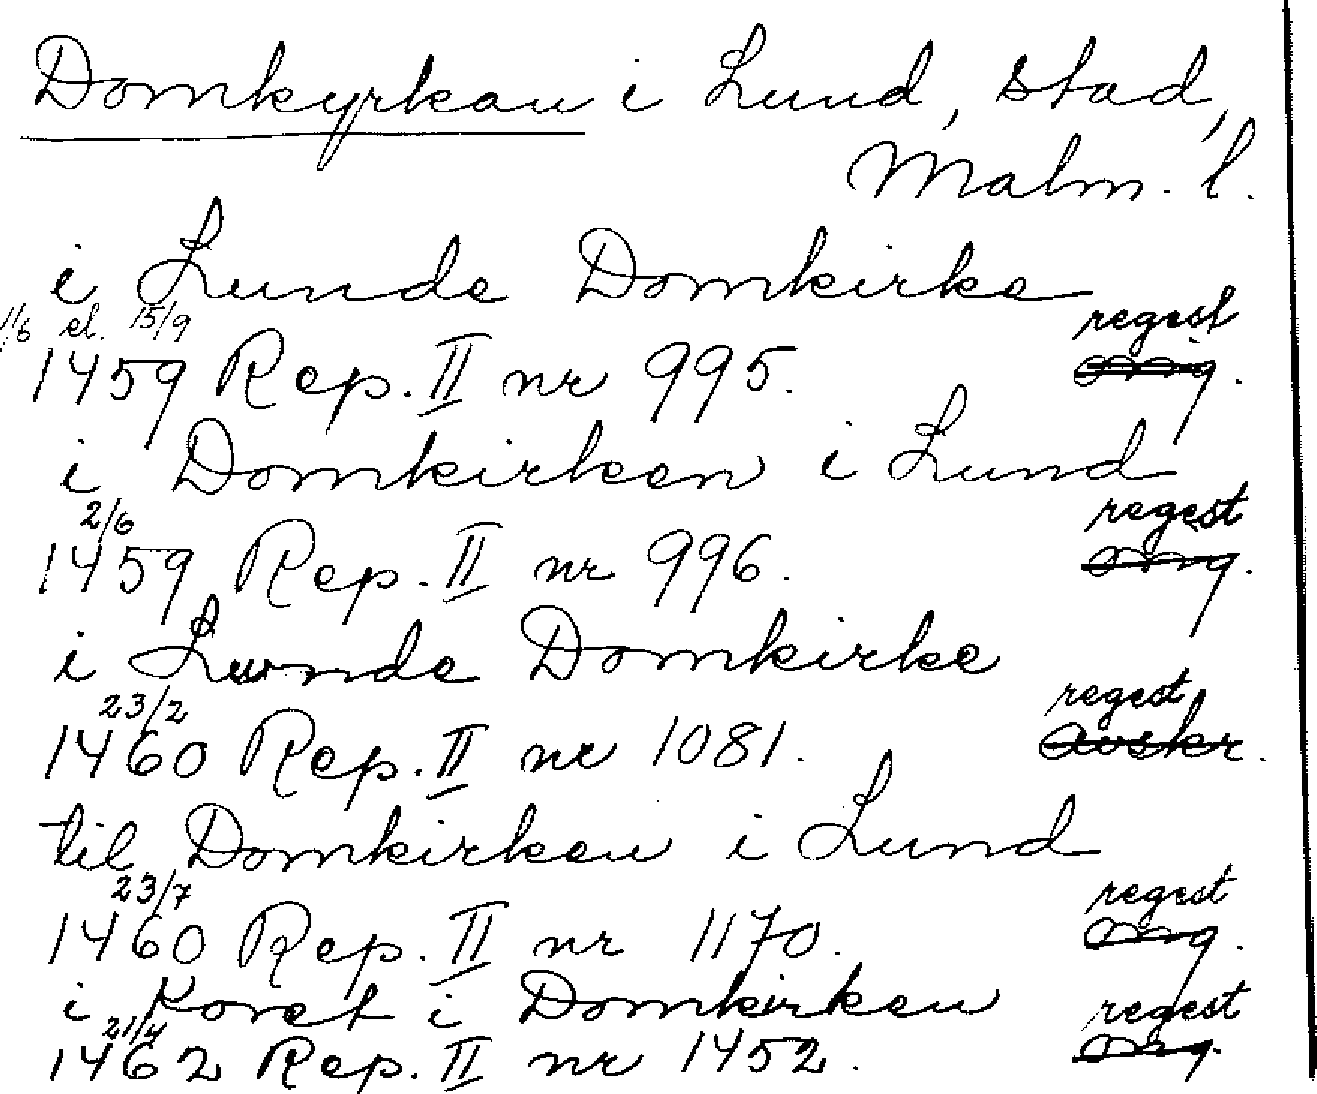 Domkyrkan i Lund, stad,
Malm. l.
i Lunde Domkirke
1/6 el. 15/9 regest
1459 Rep. II nr 995. omg.
i Domkirken i Lund
2/6 regest
1459 Rep. II nr 996. omg.
i Lunde Domkirke
23/2 regest
1460 Rep. II nr 1081. avskr.
til Domkirken i Lund
23/7 regest
1460 Rep. II nr 1170. omg.
i Koret i Domkirken
21/4 regest
1462 Rep. II nr 1452. omg.